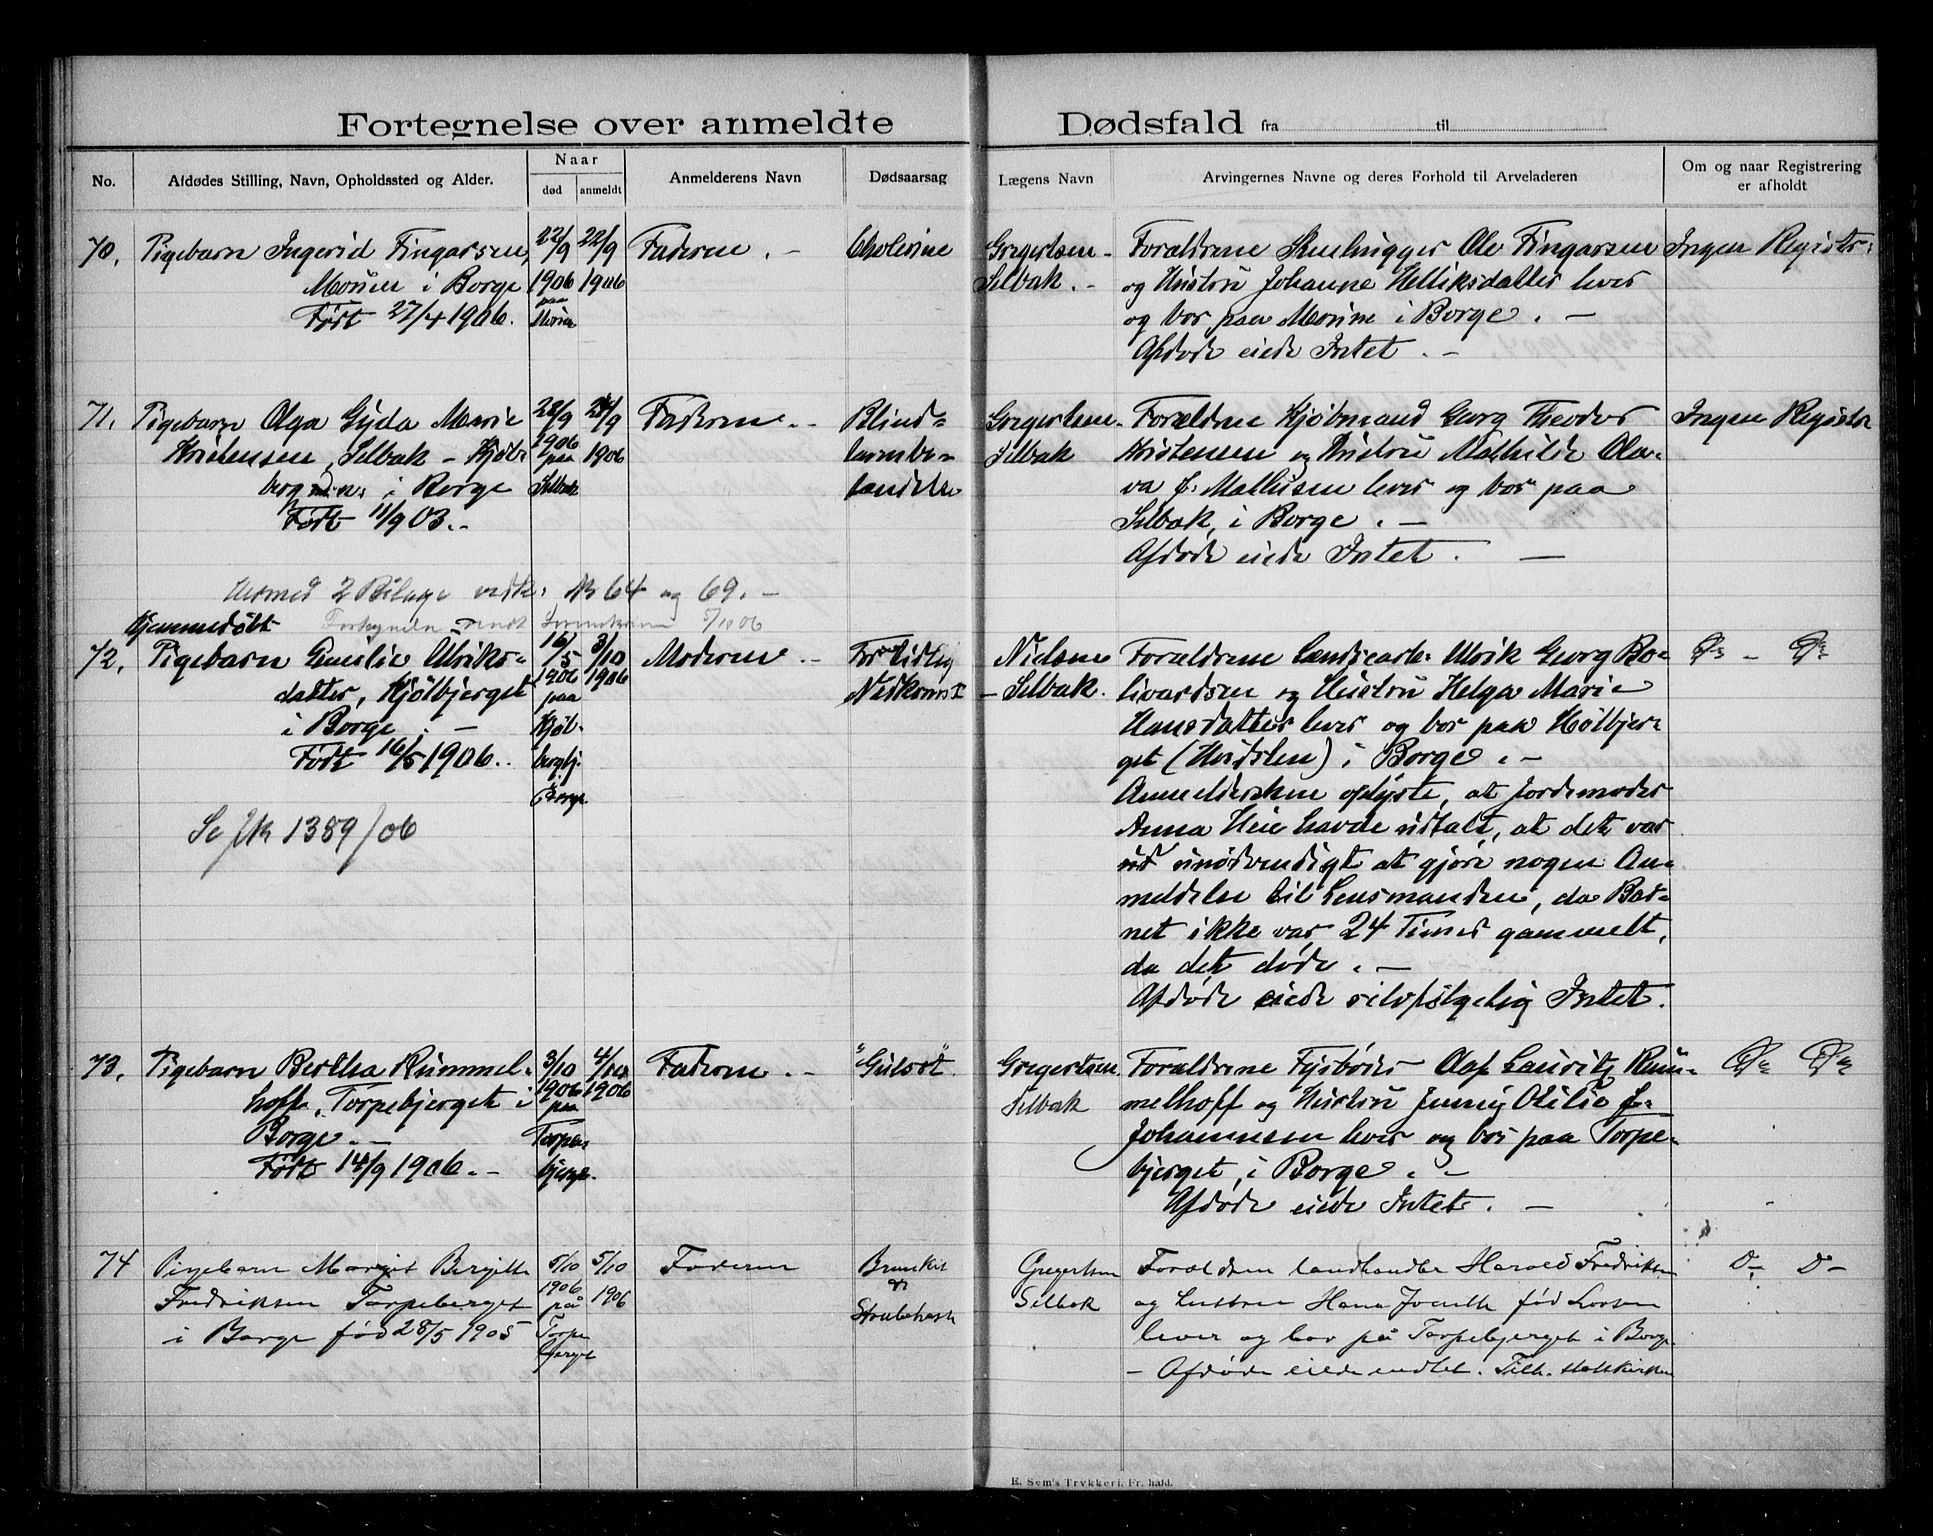 Fortegnelse over anmeldte Dødsfald fra til
No.
Afdødes Stilling, Navn, Opholdssted og Alder.
Naar
død
anmeldt
Anmelderens Navn
Dødsaarsag
Lægens Navn
Arvingernes Navne og deres Forhold til Arveladeren
Om og naar Registrering
er afholdt
70.
Pigebarn Ingerid Fingarsen,
i Borge
Født 27/4 1906.
22/9
1906
paa
22/9
1906
Faderen. -
Cholerine
Gregertsen -
Selbak. -
Forældrene Stenhugger Ole Fingarsen
og Hustru Johanne Helliksdatter lever
og bor paa i Borge. -
Afdøde eiede Intet. -
Ingen Registr:
71.
Pigebarn Olga Gyda Marie
Kristensen, Selbak - Kjølb
i Borge
Født 11/9 03. -
28/9
1906
paa
Selbak
29/9
1906
Faderen. -
Blind=
tarmbe=
tændelse
Gregertsen -
Selbak
Forældrene Kjøbmand Georg Theodor
Kristensen og Hustru Mathilde Ola=
va f. Mathisen lever og bor paa
Selbak, i Borge. -
Afdøde eiede Intet. -
Ingen Registr
Hermed 2 Bilage vedk. No 64 og 69. -
Fortegnelse sendt 5/10 06
Hjemmedøbt
72.
Pigebarn Emilie Ulriks=
datter, Kjølbjerget
i Borge. -
Født 16/5 1906. -
16/5
1906
paa
Kjøl-
bergbj.
i
Borge
3/10
1906
Moderen. -
For tidlig
Nedkomst
Nielsen
- Selbak.
Forældrene Landsearb. Ulrik Georg Bo=
livardsen og Hustru Helga Marie
Hansdatter lever og bor paa Kølbjer=
get (Hvidsten) i Borge. -
Anmeldersken oplyste, at Jordemoder
Anna Heie havde udtalt, at det var
unødvendigt at gjøre nogen An=
meldelse til Lensmanden, da Bar=
net ikke var 24 Timer gammelt,
da det døde. -
Afdøde eiede selvfølgelig Intet.
Do - Do
Se Jk 1389/06
73.
Pigebarn Bertha Rummel-
hoff, Torpebjerget i
Borge. -
Født 14/9 1906. -
3/10
1906
paa
Torpe-
bjerget.
4/10
1906
Faderen. -
"Gulsot"
Gregertsen
Selbak
Forældrene Fyrbøder Olaf Lauritz Rum=
melhoff og Hustru Jenny Otilie f.
Johannesen lever og bor paa Torpe=
bjerget, i Borge. -
Afdøde eiede Intet. -
Do Do
74
Pigebarn Margit Bergitte
Fredriksen Torpeberget
i Borge fød 28/5 1905
5/10
1906
på
Torpe
bjerget
5/10
1906
Faderen
Bronkit
og
Strubehoste
Gregertsen
Selbak
Forældrene landhandler Harald Fredriksen
og hustru Hana fød Larsen
lever og bor på Torpebjerget i Borge
- Afdøde eiede indtet. Tilh. statskirken
Do D -
E. Sem's Trykkeri. Fr.hald.